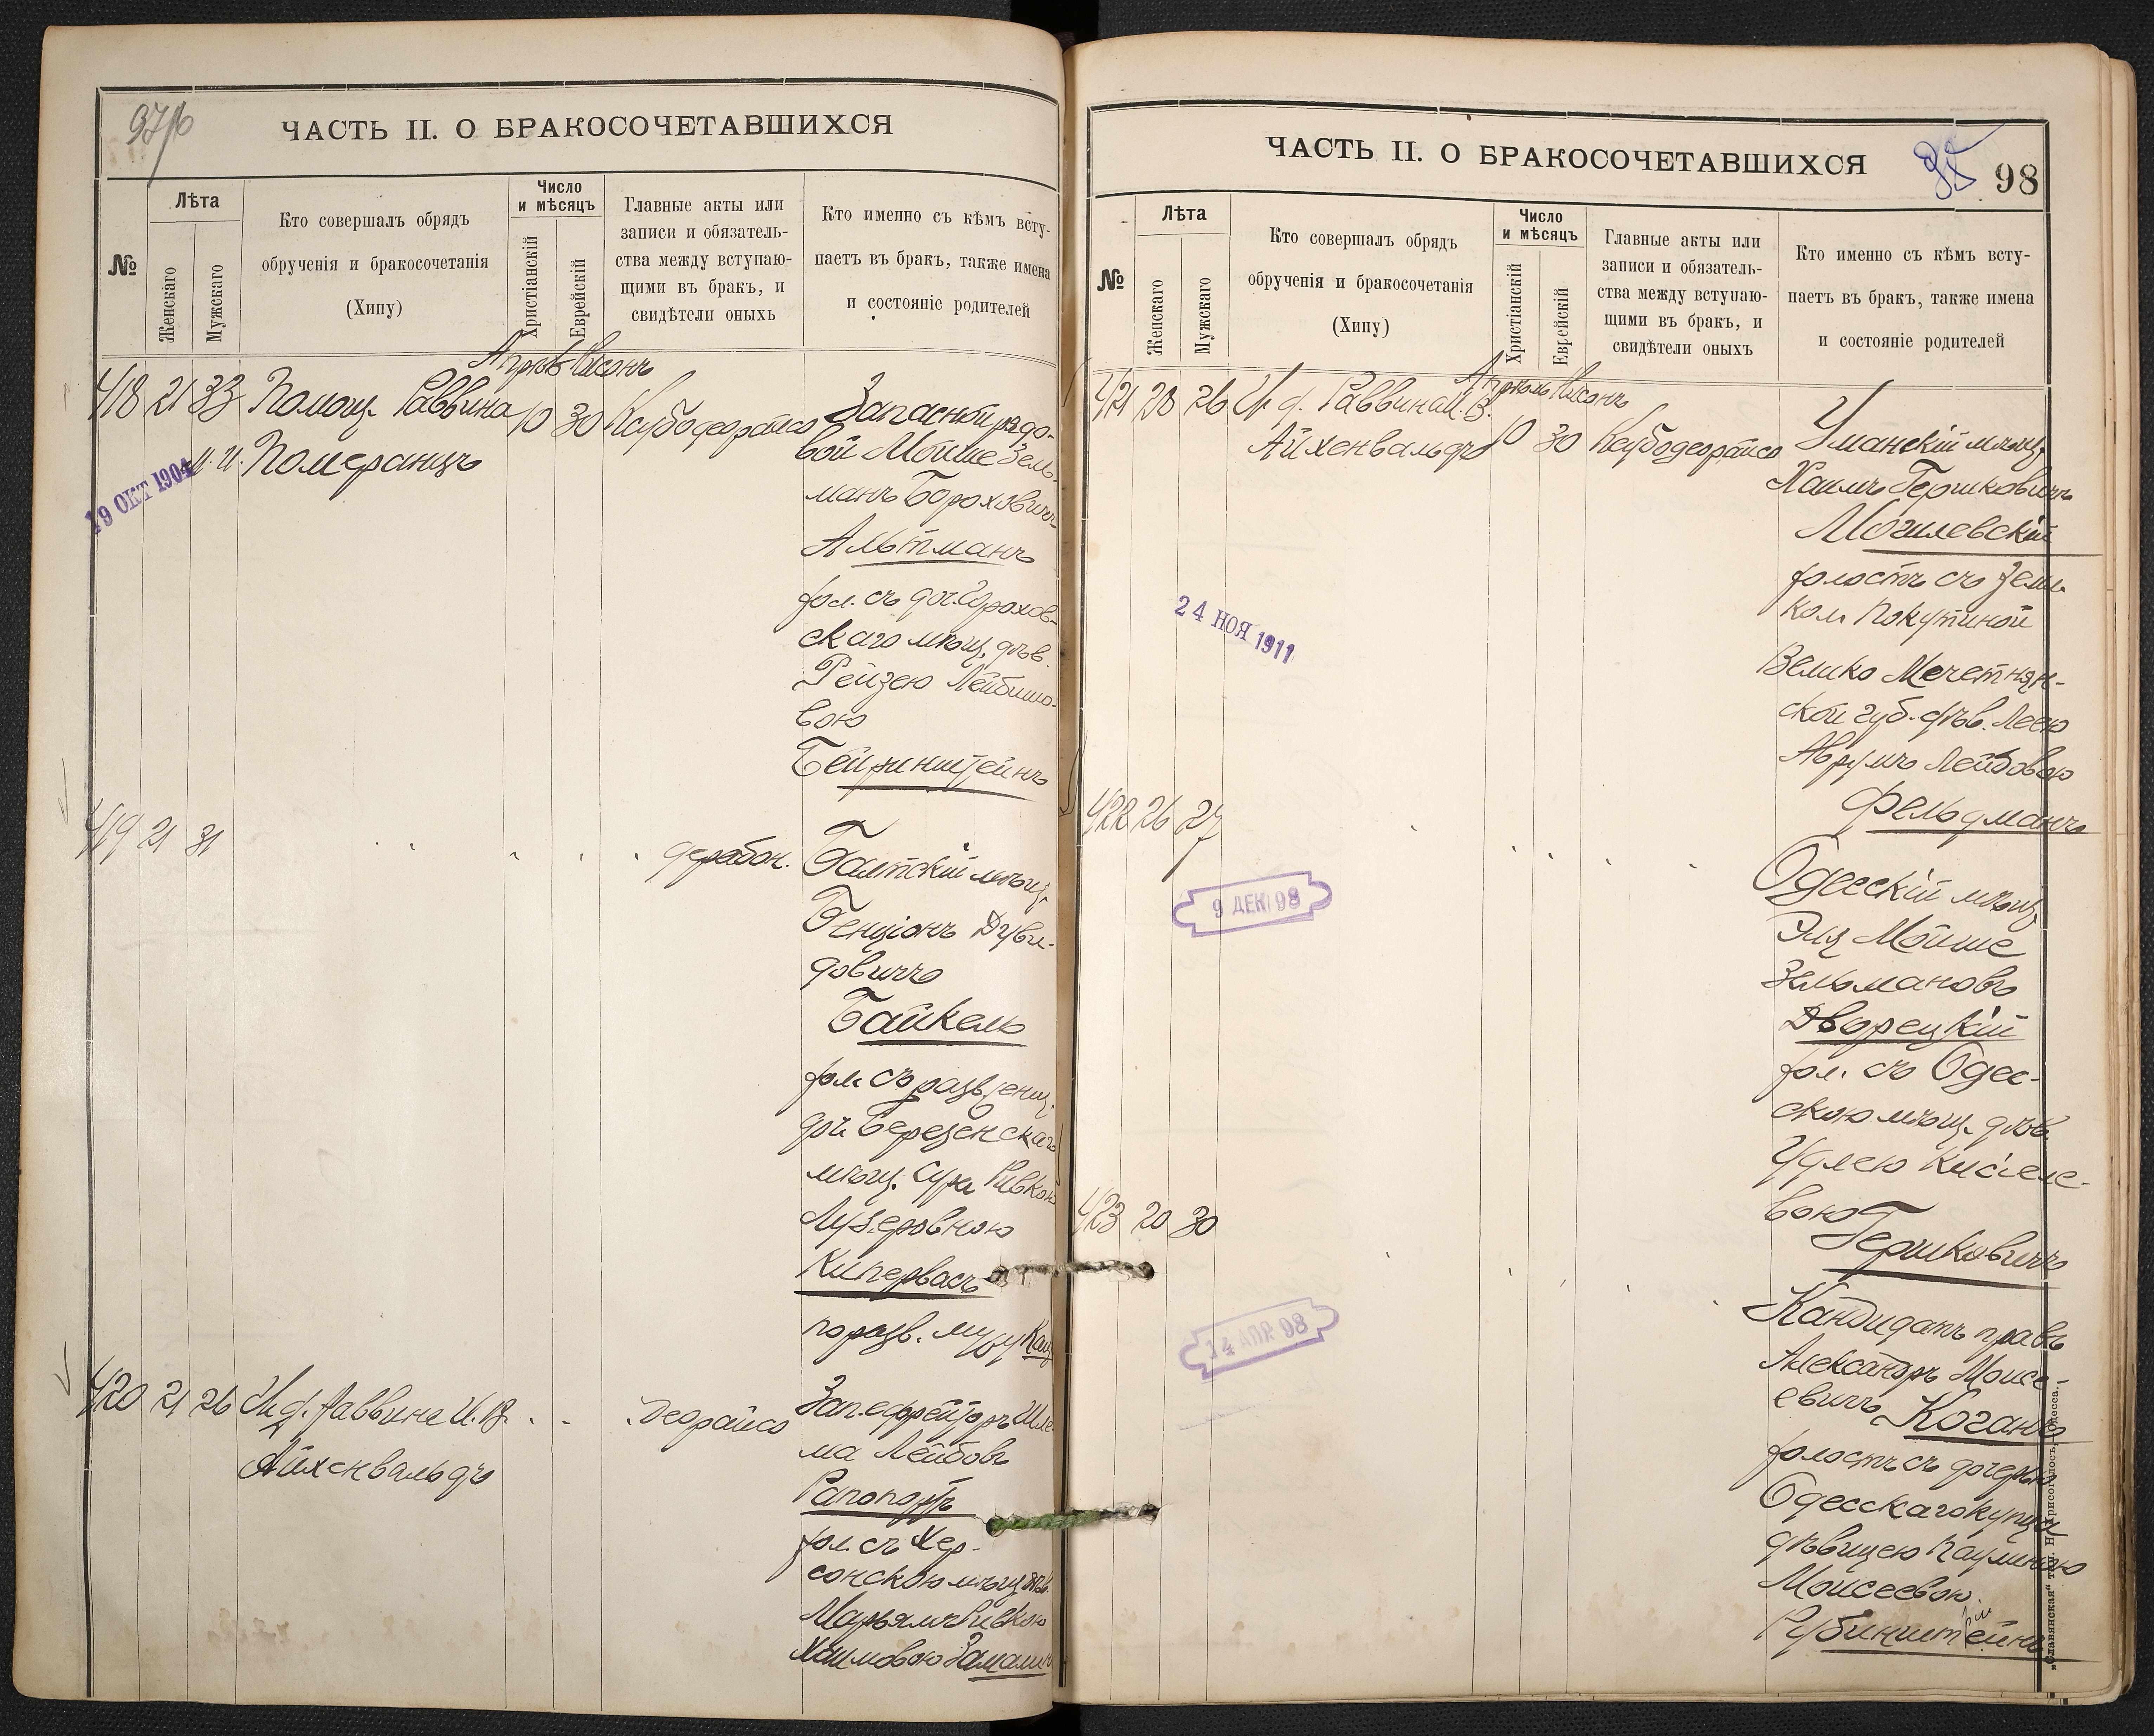 97/б
ЧАСТЬ II. О БРАКОСОЧЕТАВШИХСЯ
№
Лѣта
Женскаго
Мужскаго
Кто совершалъ обрядъ
обрученія и бракосочетанія
(Хипу)
Число
и мѣсяцъ
Христіанскій
Еврейскій
Главные акты или
записи и обязатель-
ства между вступаю-
щими въ бракъ, и
свидѣтели оныхъ
Кто именно съ кѣмъ всту-
паетъ въ бракъ, также имена
и состояніе родителей
Апрѣль Нисонъ
418 21 33 Помощ. Раввина 10 30
И. И. Померанцъ
19 ОКТ 1904
Запасной рядо-
вой Мойше Зель-
манъ Бороховичъ
Альтманъ
хол. съ доч. Орхов-
скаго мѣщ. дѣв.
Рейзею Лейбишо-
вою
Бейринштейнъ
419 21 31
Балтскій мѣщ.
Бенціонъ Дуви-
довичъ
Байкель
хол. съ разв. женщ.
доч. Березенскаго
мѣщ. Сура Ривкою
Лузеровною
Кипервасъ
по разв. мужу Кац
420 21 26 И. д. Раввина И. В.
Айхенвальдъ
Деорайсо
Зап. ефрейторъ Шле-
ма Лейбовъ
Рапопортъ
хол. съ Хер-
сонскою мѣщ. дѣв.
Марьямъ Ривкою
Хаимовою
ЧАСТЬ II. О БРАКОСОЧЕТАВШИХСЯ
98
№
Лѣта
Женскаго
Мужскаго
Кто совершалъ обрядъ
обрученія и бракосочетанія
(Хипу)
Число
и мѣсяцъ
Христіанскій
Еврейскій
Главные акты или
записи и обязатель-
ства между вступаю-
щими въ бракъ, и
свидѣтели оныхъ
Кто именно съ кѣмъ всту-
паетъ въ бракъ, также имена
и состояніе родителей
Апрѣль Нисонъ
421 28 26 И. д. Раввина И. В.
Айхенвальдъ 10 30
24 НОЯ 1911
Уманскій мѣщ.
Хаимъ Гершковичъ
Могилевскій
холостъ съ земл.
кол. Покутиной
Велико Мечетнян-
ской губ. дѣв. Леею
Аврумъ Лейбовою
Фельдманъ
422 26 27
9 ДЕК 98
Одесскій мѣщ.
Эля Мойше
Зельмановъ
Дворецкій
хол. съ Одес-
скою мѣщ. дѣв.
Идлею Кисіеле-
вою
Гершковичъ
423 20 30
14 АПР 98
Кандидатъ правъ
Александръ Моисе-
евичъ Коганъ
холостъ съ дочерью
Одесскаго купца
дѣвицею Паулиною
Моисеевою
Рубинштейнъ
„Славянская“ тип. Н. Хрисогелосъ, Одесса.